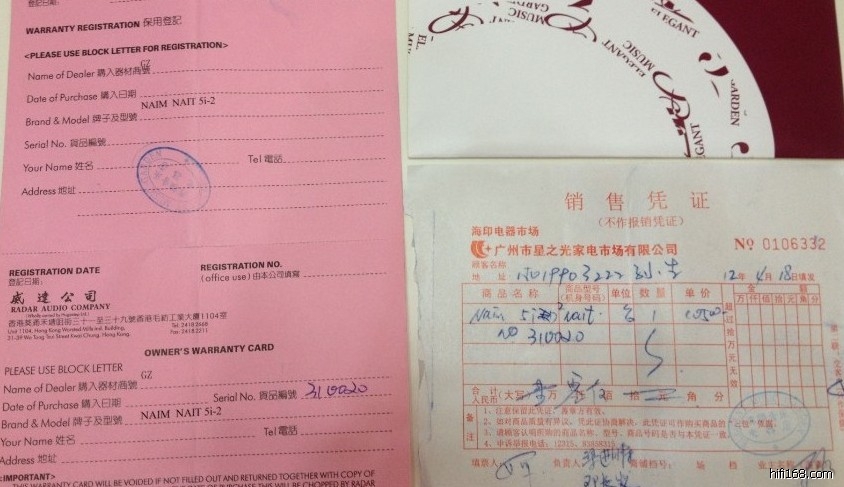 登記日期
WARRANTY REGISTRATION 保用登記
<PLEASE USE BLOCK LETTER FOR REGISTRATION>
Name of Dealer 購入器材商號 GZ
Date of Purchase 購入日期
Brand & Model 牌子及型號 NAIM NAIT 5i-2
Serial No. 貨品編號
Your Name 姓名 Tel 電話
Address 地址
REGISTRATION DATE
登記日期:
REGISTRATION NO.
(office use) 由本公司填寫
威達公司
RADAR AUDIO COMPANY
香港葵涌禾塘咀街三十一至三十九號香港毛紡工業大廈1104室
Unit 1104, Hong Kong Worsted Mills Ind. Building,
31-39 Wo Tong Tsui Street Kwai Chung, Hong Kong.
Tel: 24182668
Fax: 24182211
OWNER'S WARRANTY CARD
PLEASE USE BLOCK LETTER
Name of Dealer 購入器材商號 GZ
Date of Purchase 購入日期 Serial No. 貨品編號 310020
Brand & Model 牌子及型號 NAIM NAIT 5i-2
Your Name 姓名 Tel 電話
Address 地址
<IMPORTANT>
THIS WARRANTY CARD WILL BE VOIDED IF NOT FILLED OUT AND RETURNED TOGETHER WITH COPY OF
ELEGANT
MUSIC
GARDEN
ELEGANT
MUSIC
GARDEN
ELEGANT
销售凭证
(不作报销凭证)
海印电器市场
广州市星之光家电市场有限公司
№ 0106332
顾客名称
地址 12年4月18日填发
商品名称 商品型号(机身号码) 单位 数量 单价 金额
万仟佰拾元角分
超过拾万元无效
Naim 5i 2 nait. 台 1
No 310020
合计人民币(大写) 万 仟 佰 拾 元 角 分
备注
1、注意保留此凭证,商章方有效。
2、如对商品质量有异议,凭此证协商解决,此凭证可作购买商品的"三包"依据。
3、请顾客认明所购的商品名称、型号、商品号码是否与本凭证一致。
填票人: 负责人: 商铺档号: 场 档
hifi168.com